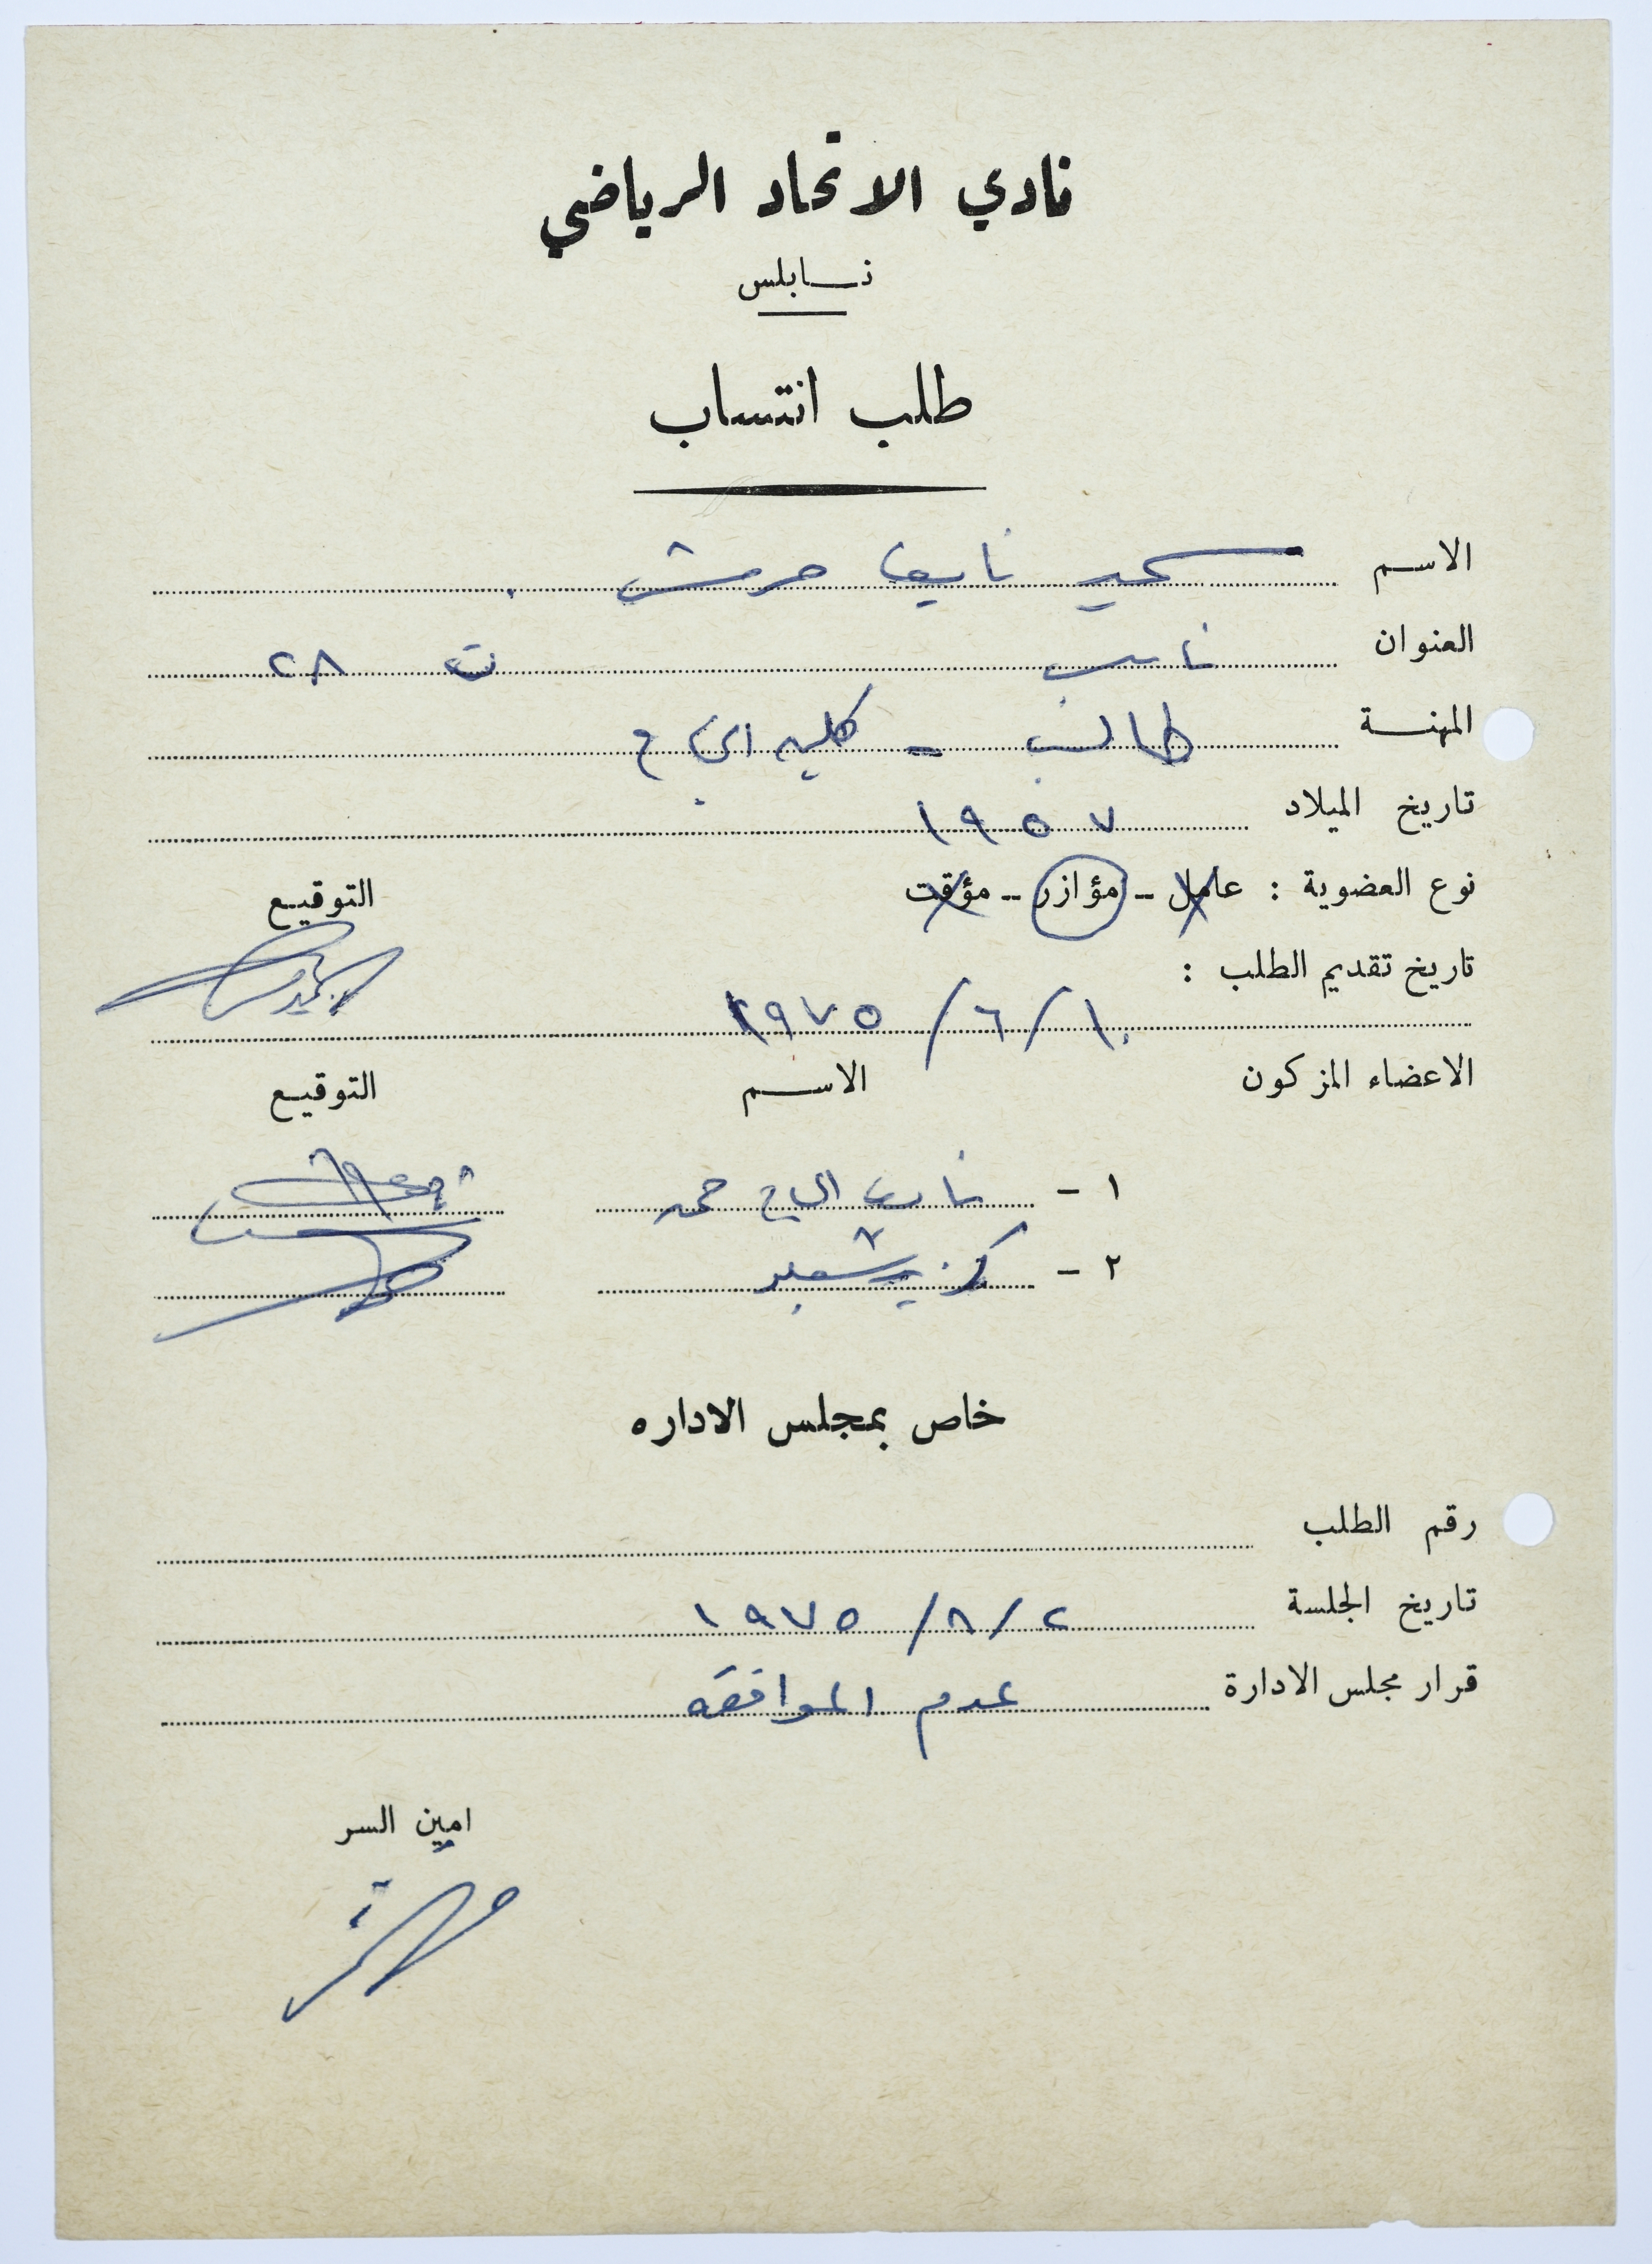 نادي الاتحاد الرياضي
نابلس
طلب انتساب
الاسم سمير نايف حرمش
العنوان نابلس ت ٢٨
المهنة طالب - كلية النجاح
تاريخ الميلاد ١٩٥٧
نوع العضوية : عامل - مؤازر - مؤقت التوقيع
تاريخ تقديم الطلب :
١٠/٦/١٩٧٥
الاعضاء المزكون الاسم التوقيع
١ - الحاج حمد
٢ -
خاص بمجلس الاداره
رقم الطلب
تاريخ الجلسة ٢/٨/١٩٧٥
قرار مجلس الادارة عدم الموافقه
امين السر